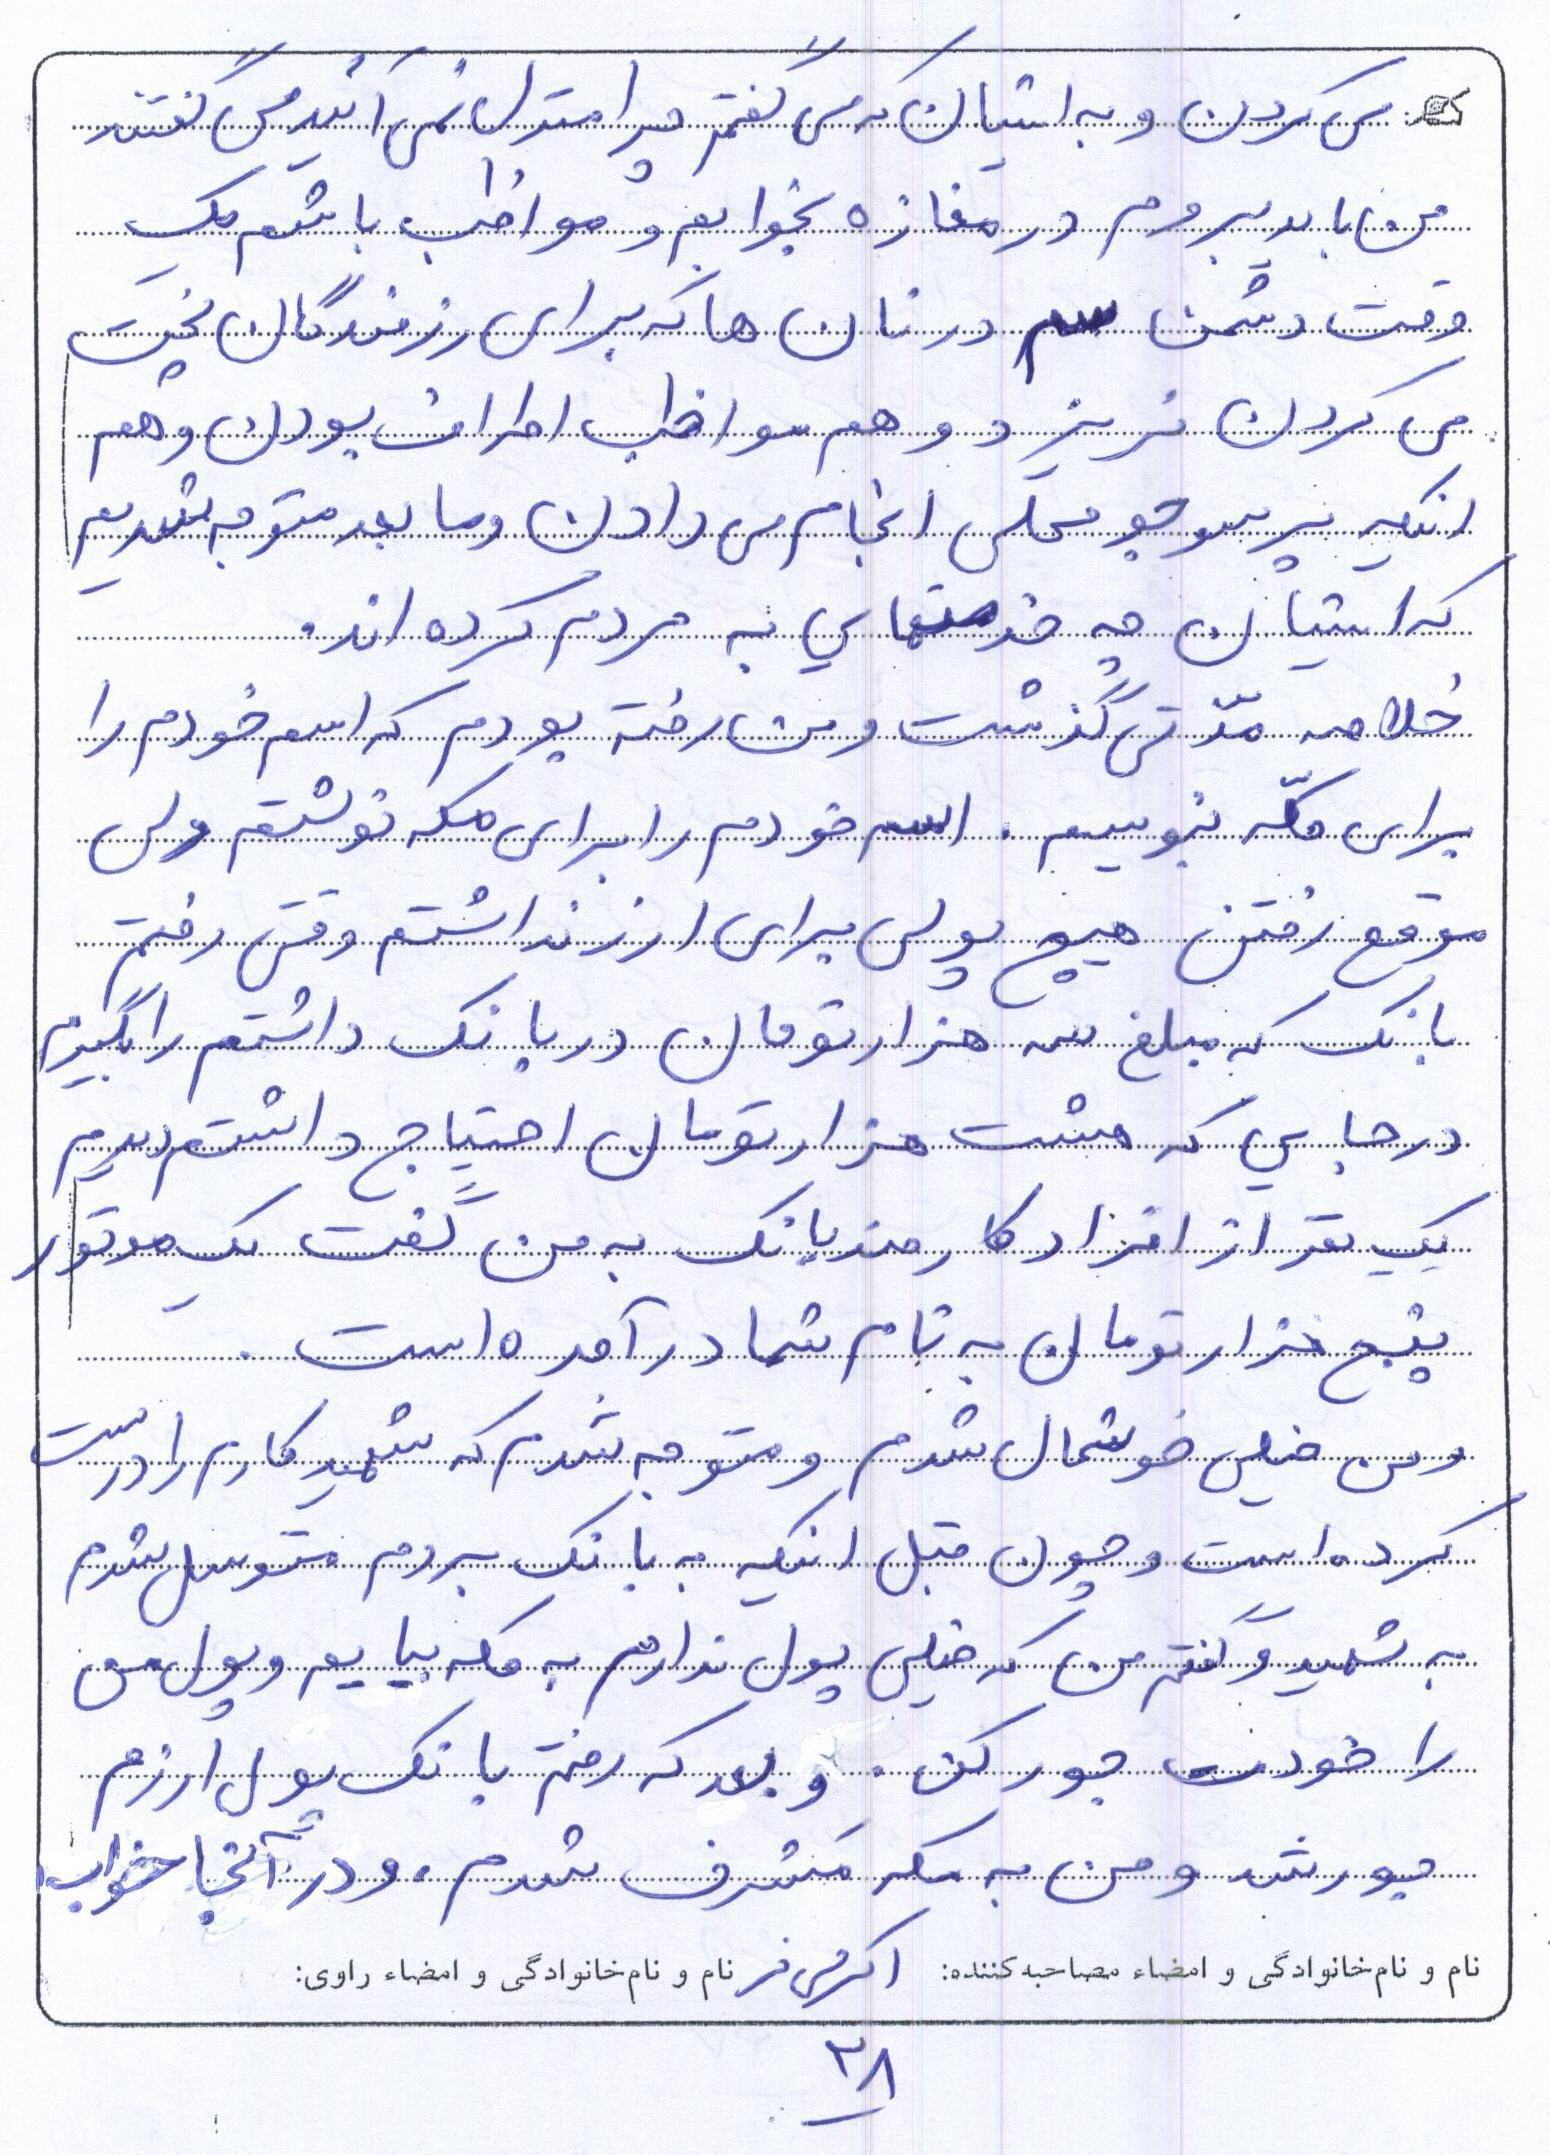 می کردن و به ایشان که می گفتم چرا منزل نمی آئید می گفتند
من باید بروم در مغازه بخوابم و مواظب باشم یک
وقت دشمن سم در نان ها که برای رزمندگان پخت
می کردن نریزد و هم مواظب اطراف بودن و هم
اینکه پرسوجو محلی انجام می دادن و ما بعد متوجه شدیم
که ایشان چه خدمتهایی به مردم کرده اند.
خلاصه مدّتی گذشت و من رفته بودم که اسم خودم را
برای مکّه بنویسم. اسم خودم را برای مکه نوشتم ولی
موقع رفتن هیچ پولی برای ارز نداشتم وقتی رفتم
بانک که مبلغ سه هزار تومان در بانک داشتم را بگیرم
در جایی که هشت هزار تومان احتیاج داشتم دیدم
یک نفر از افراد کارمند بانک به من گفت یک موتور
پنج هزار تومان به نام شما در آمده است.
ومن خیلی خوشحال شدم و متوجه شدم که شهید کارم را درست
کرده است و چون قبل اینکه به بانک بروم متوسل شدم
به شهید و گفتم من که خیلی پول ندارم به مکه بیایم و پول من
را خودت جور کن. و بعد که رفتم بانک پول ارزم
جور شد و من به مکه مشرف شدم، و در آنجا خواب
نام و نام خانوادگی و امضاء مصاحبه کننده: اکرمی فر نام و نام خانوادگی و امضاء راوی:
۲۸